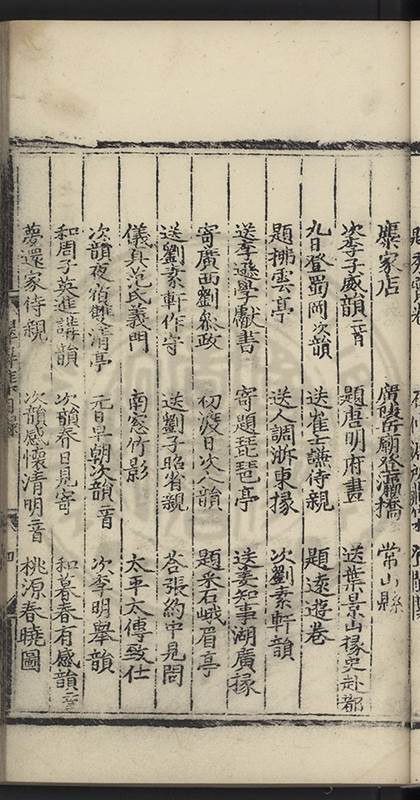 麋家店 廣陵岳廟登溯瀨橋 常山縣
次李子威韻二首 題唐明府畫 送葉景山掾史赴都
九日登蜀岡次韻 送崔士謙侍親 題遠遊卷
題拂雲亭 送人調浙東掾 次劉素軒韻
送李遜學獻書 寄題琵琶亭 送姜知事湖廣掾
寄廣西劉叅政 初渡日次八韻 題采石峨眉亭
送劉素軒作守 送劉子昭省親 荅張約中見問
儀真范氏義門 南窓竹影 太平太傅致仕
次韻夜宿雙清亭 元日早朝次韻二首 次李明舉韻
和周子英進講韻 次韻春日見寄 和暮春有感韻二首
夢還家侍親 次韻感懷清明二首 桃源春曉圖